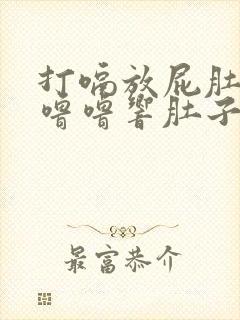 打嗝放屁肚
噜噜响肚子
最富恭介